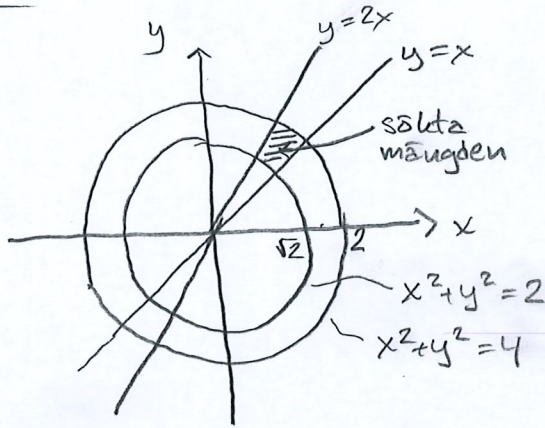 y
y=2x
y=x
sökta
mängden
x
√2
2
x²+y²=2
x²+y²=4